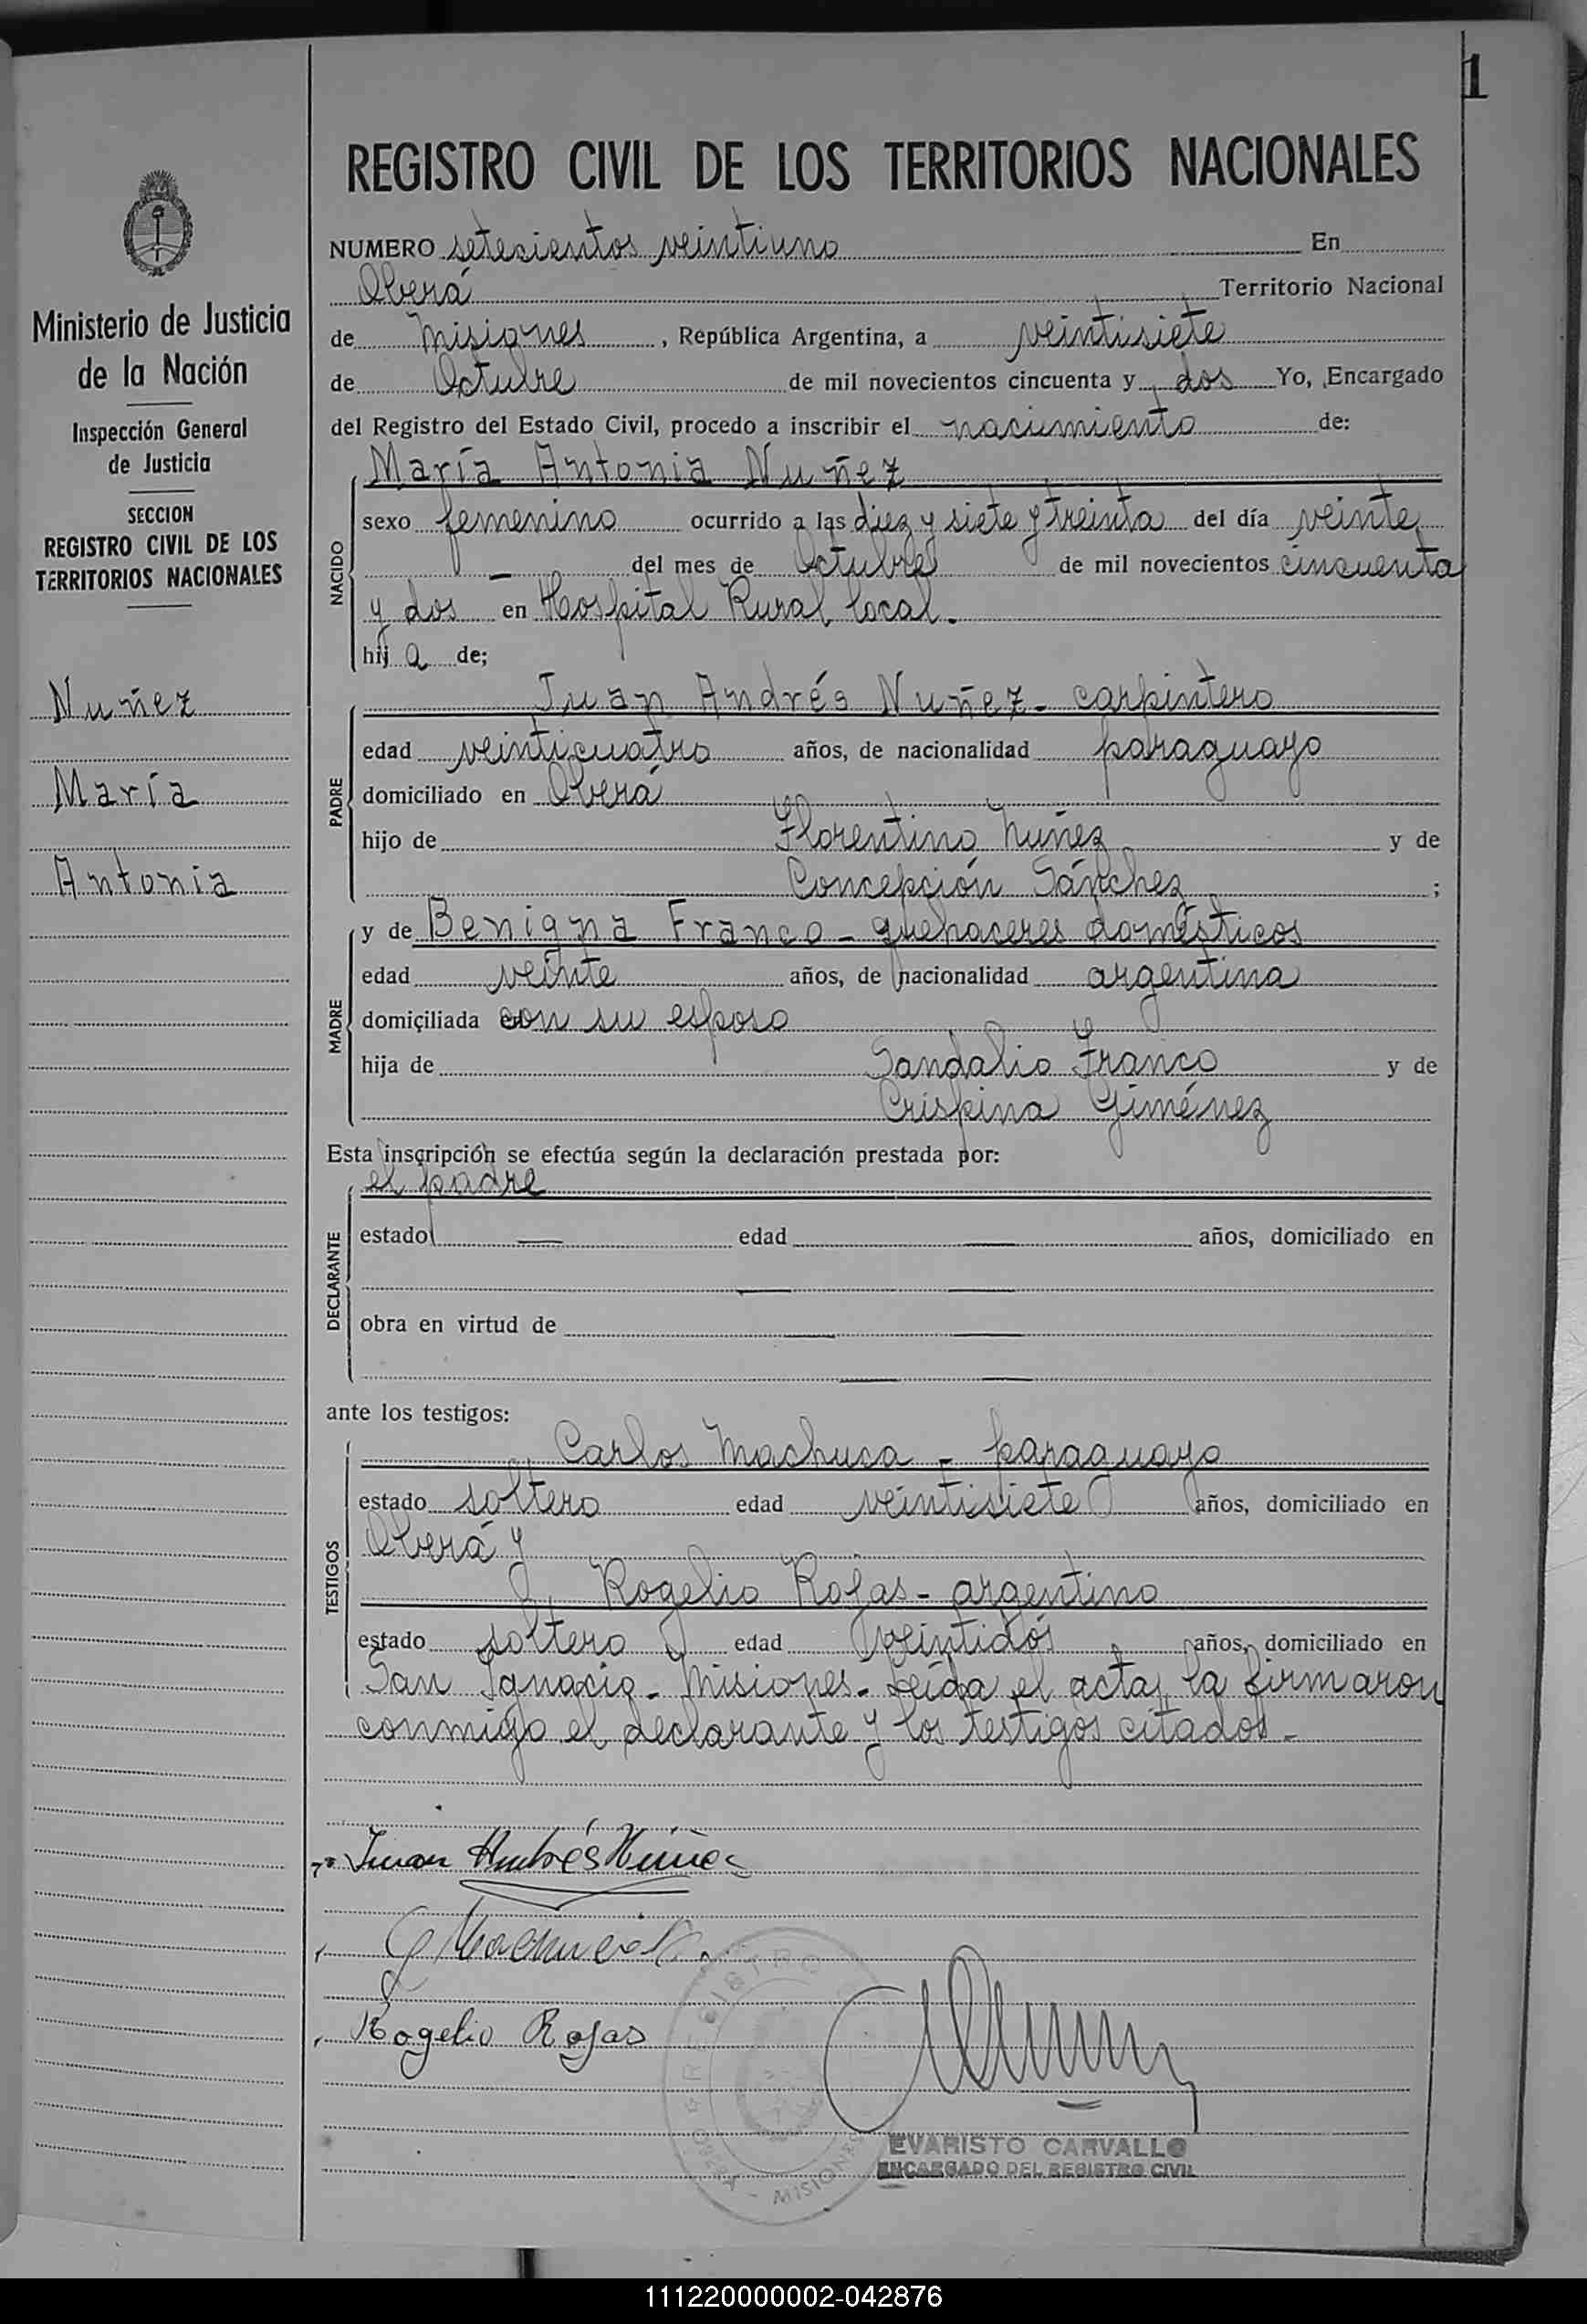 1
REGISTRO CIVIL DE LOS TERRITORIOS NACIONALES
Ministerio de Justicia
de la Nación
Inspección General
de Justicia
SECCION
REGISTRO CIVIL DE LOS
TERRITORIOS NACIONALES
Nuñez
María
Antonia
NUMERO setecientos veintiuno En
Oberá Territorio Nacional
de Misiones, República Argentina, a veintisiete
de Octubre de mil novecientos cincuenta y dos Yo, Encargado
del Registro del Estado Civil, procedo a inscribir el nacimiento de:
NACIDO
María Antonia Nuñez
sexo femenino ocurrido a las diez y siete y treinta del día veinte
— del mes de Octubre de mil novecientos cincuenta
y dos en Hospital Rural local.
hij a de;
PADRE
Juan Andrés Nuñez - carpintero
edad veinticuatro años, de nacionalidad paraguayo
domiciliado en Oberá
hijo de Florentino Nuñez y de
Concepción Sánchez ;
MADRE
y de Benigna Franco - quehaceres domésticos
edad veinte años, de nacionalidad argentina
domiciliada con su esposo
hija de Sandalio Franco y de
Crispina Giménez
Esta inscripción se efectúa según la declaración prestada por:
DECLARANTE
el padre
estado — edad — años, domiciliado en
— —
obra en virtud de — —
— —
ante los testigos:
TESTIGOS
Carlos Machuca - paraguayo
estado soltero edad veintisiete años, domiciliado en
Oberá y
Rogelio Rojas - argentino
estado soltero edad veintidós años, domiciliado en
San Ignacio - Misiones - Leída el acta, la firmaron
conmigo el declarante y los testigos citados -
Juan Andrés Núñez
Rogelio Rojas
REGISTRO
OBERÁ - MISIONES
EVARISTO CARVALLO
ENCARGADO DEL REGISTRO CIVIL
111220000002-042876